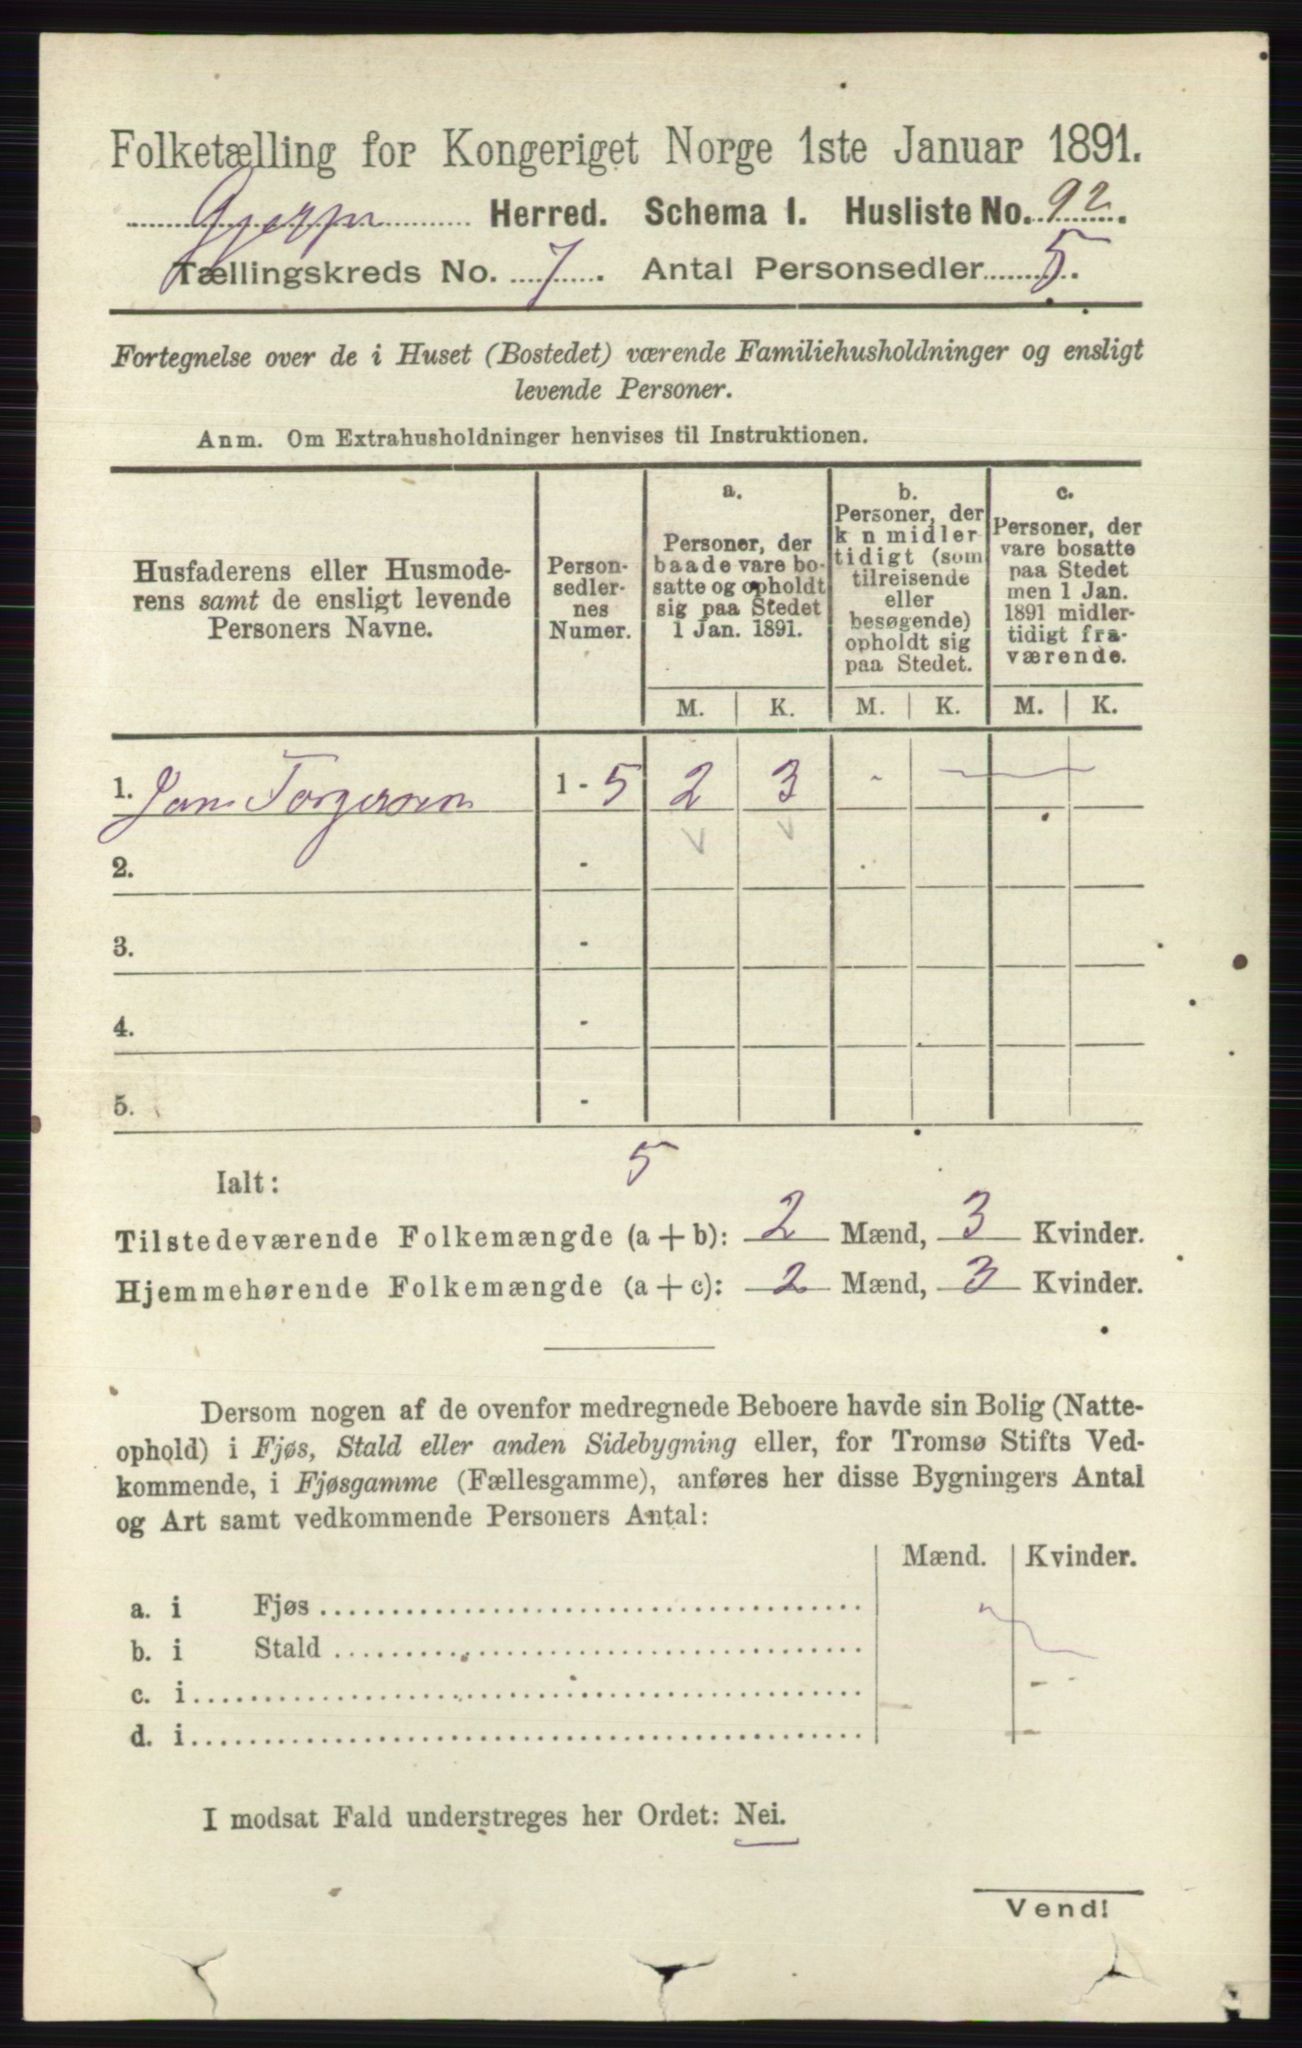 Folketælling for Kongeriget Norge 1ste Januar 1891.
Gjerpen Herred. Schema 1. Husliste No. 92.
Tællingskreds No. 7. Antal Personsedler 5.
Fortegnelse over de i Huset (Bostedet) værende Familiehusholdninger og ensligt
levende Personer.
Anm. Om Extrahusholdninger henvises til Instruktionen.
Husfaderens eller Husmode-
rens samt de ensligt levende
Personers Navne.
Person-
sedler-
nes
Numer.
a.
Personer, der
baade vare bo-
satte og opholdt
sig paa Stedet
1 Jan. 1891.
b.
Personer, der
k n midler-
tidigt (som
tilreisende
eller
besøgende)
opholdt sig
paa Stedet.
c.
Personer, der
vare bosatte
paa Stedet
men 1 Jan.
1891 midler-
tidigt fra-
værende.
M. K. M. K. M. K.
1. Jan Torgersen 1 - 5 2 3 -
2. -
3. -
4. -
5. -
Ialt: 5
Tilstedeværende Folkemængde (a + b): 2 Mænd, 3 Kvinder.
Hjemmehørende Folkemængde (a + c): 2 Mænd, 3 Kvinder.
Dersom nogen af de ovenfor medregnede Beboere havde sin Bolig (Natte-
ophold) i Fjøs, Stald eller anden Sidebygning eller, for Tromsø Stifts Ved-
kommende, i Fjøsgamme (Fællesgamme), anføres her disse Bygningers Antal
og Art samt vedkommende Personers Antal:
Mænd. Kvinder.
a. i Fjøs
b. i Stald
c. i
d. i
I modsat Fald understreges her Ordet: Nei.
Vend!